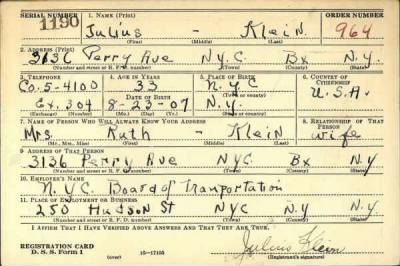 SERIAL NUMBER 1. NAME (Print) ORDER NUMBER
1190 Julius - Klein 964
(First) (Middle) (Last)
2. ADDRESS (Print)
3136 Perry Ave N.Y.C. Bx N.Y.
(Number and street or R. F. D. number) (Town) (County) (State)
3. TELEPHONE 4. AGE IN YEARS 5. PLACE OF BIRTH 6. COUNTRY OF CITIZENSHIP
Co. 5-4100 33 N.Y.C
DATE OF BIRTH (Town or county)
Ex. 304 8-23-07 N.Y. U.S.A.
(Exchange) (Number) (Mo.) (Day) (Yr.) (State or country)
7. NAME OF PERSON WHO WILL ALWAYS KNOW YOUR ADDRESS 8. RELATIONSHIP OF THAT PERSON
Mrs. Ruth - Klein wife
(Mr., Mrs., Miss) (First) (Middle) (Last)
9. ADDRESS OF THAT PERSON
3136 Perry Ave NYC Bx N.Y
(Number and street or R. F. D. number) (Town) (County) (State)
10. EMPLOYER'S NAME
N.Y.C. Board of Tranportation
11. PLACE OF EMPLOYMENT OR BUSINESS
250 Hudson St NYC N.Y N.Y
(Number and street or R. F. D. number) (Town) (County) (State)
I AFFIRM THAT I HAVE VERIFIED ABOVE ANSWERS AND THAT THEY ARE TRUE.
REGISTRATION CARD
D. S. S. Form 1 (over) 16-17105 Julius Klein
(Registrant's signature)